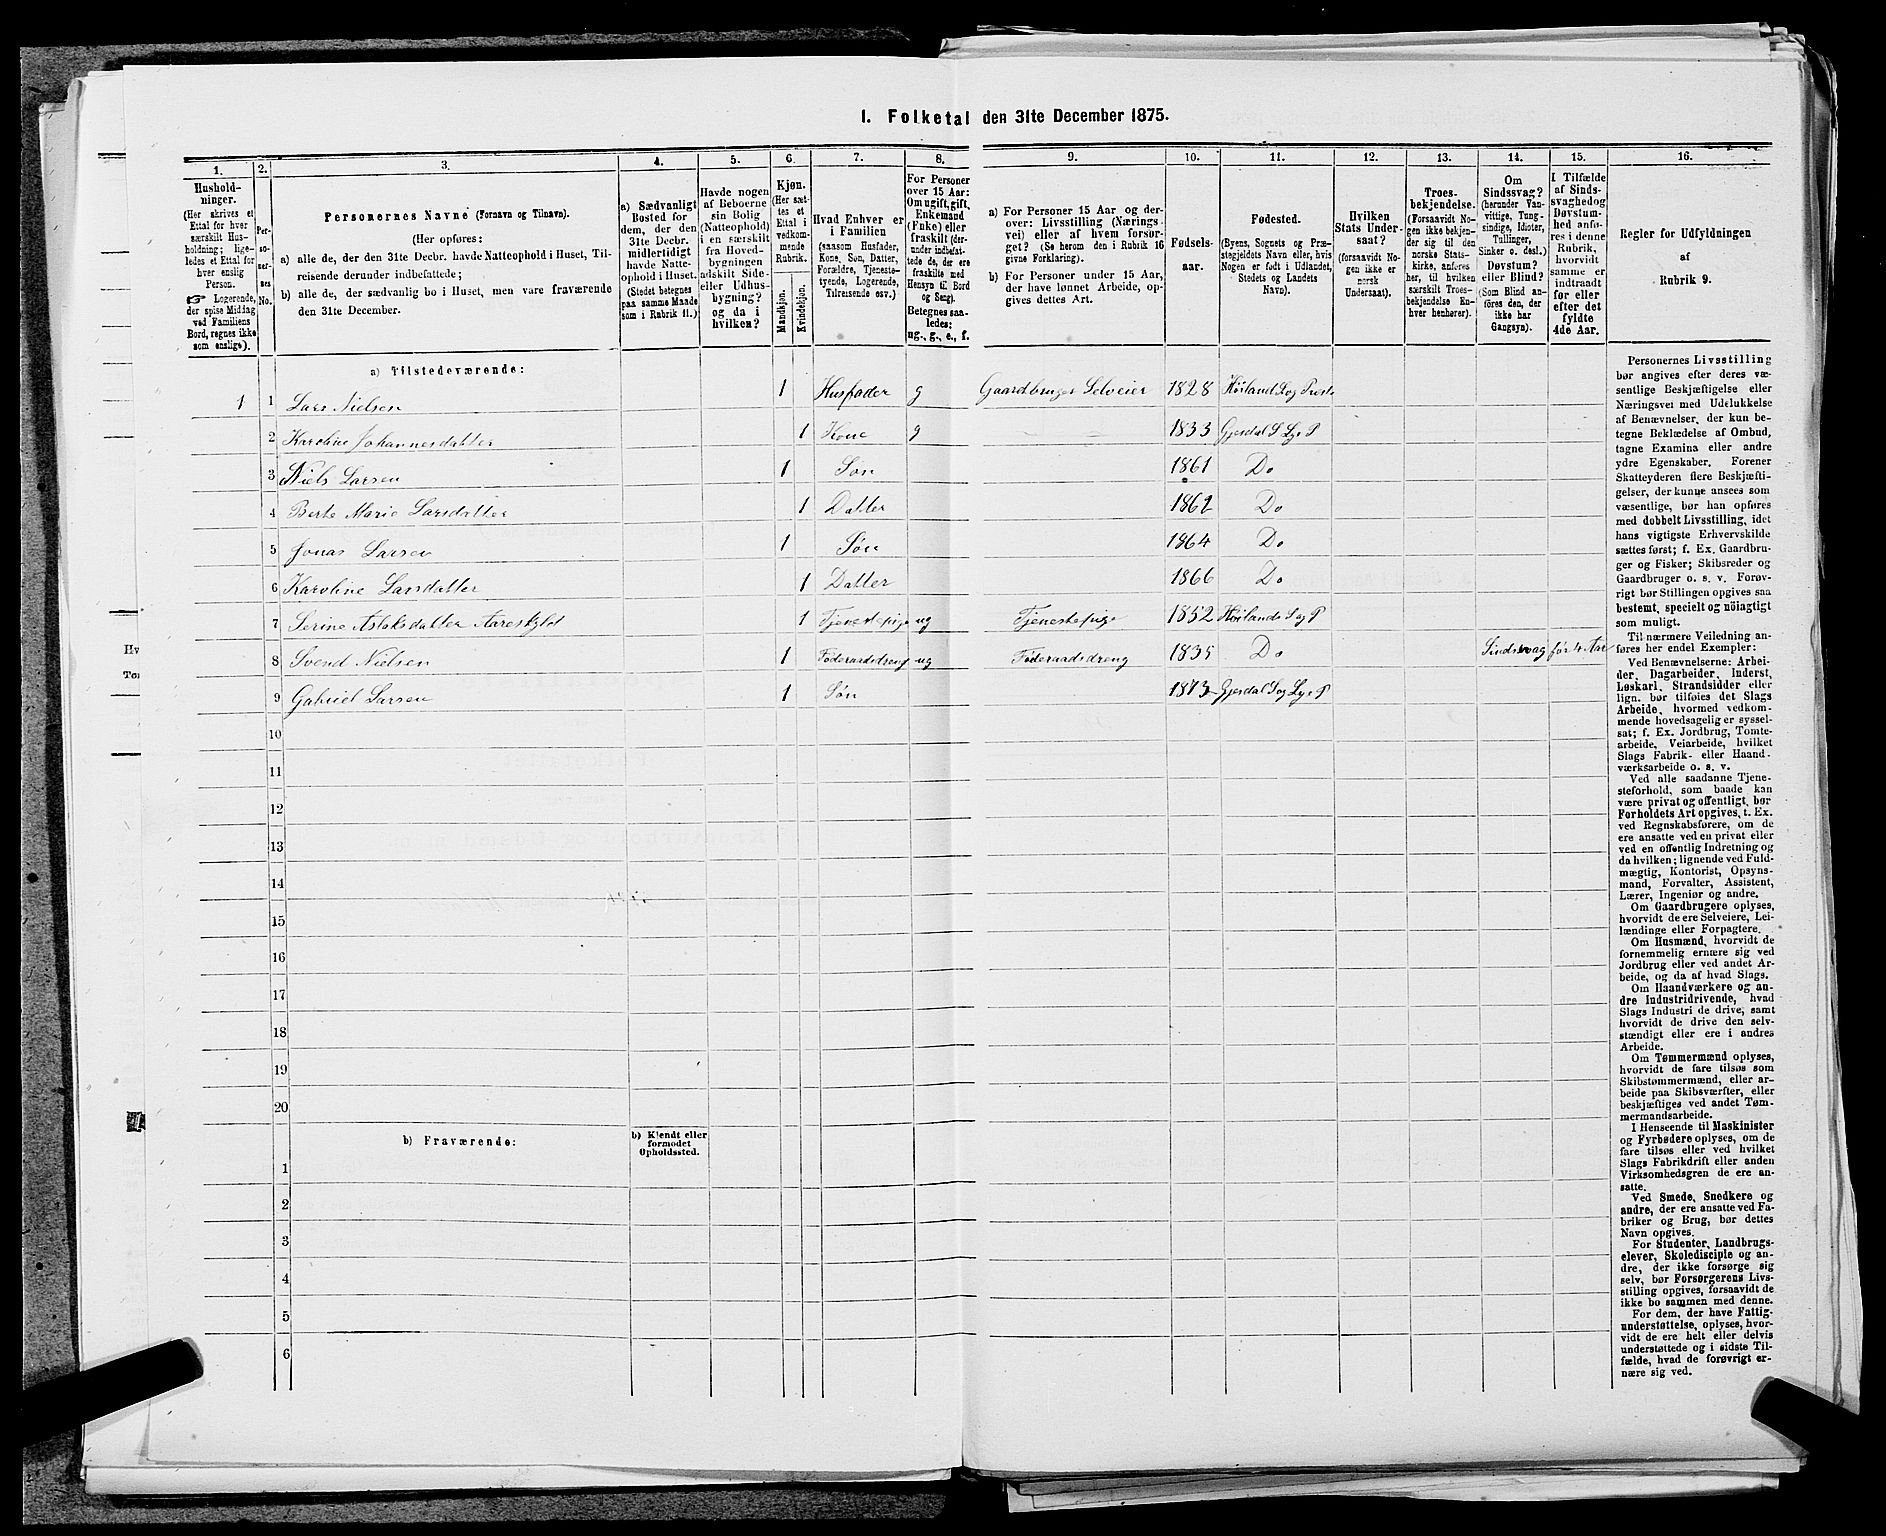 I. Folketal den 31te December 1875.
1.
Hushold-
ninger.
(Her skrives et
Ettal for hver
særskilt Hus-
holdning; lige-
ledes et Ettal for
hver enslig
Person.
☞ Logerende,
der spise Middag
ved Familiens
Bord, regnes ikke
som enslige).
2.
Per-
so-
ner-
nes
No.
3.
Personernes Navne (Fornavn og Tilnavn).
(Her opføres:
a) alle de, der den 31te Decbr. havde Natteophold i Huset, Til-
reisende derunder indbefattede;
b) alle de, der sædvanlig bo i Huset, men vare fraværende
den 31te December.
4.
a) Sædvanligt
Bosted for
dem, der den
31te Decbr.
midlertidigt
havde Natte-
ophold i Huset.
(Stedet betegnes
paa samme Maade
som i Rubrik 11.)
5.
Havde nogen
af Beboerne
sin Bolig
(Natteophold)
i en særskilt
fra Hoved-
bygningen
adskilt Side-
eller Udhus-
bygning?
og da i
hvilken?
6.
Kjøn.
(Her sæt-
tes et
Ettal i
vedkom-
mende
Rubrik.
Mandkjøn.
Kvindekjøn.
7.
Hvad Enhver er
i Familien
(saasom Husfader,
Kone, Søn, Datter,
Forældre, Tjeneste-
tyende, Logerende,
Tilreisende osv.)
8.
For Personer
over 15 Aar:
Om ugift, gift,
Enkemand
(Enke) eller
fraskilt (der-
under indbefat-
tede de, der ere
fraskilte med
Hensyn til Bord
og Seng).
Betegnes saa-
ledes:
ug., g., e., f.
9.
a) For Personer 15 Aar og der-
over: Livsstilling (Nærings-
vei) eller af hvem forsør-
get? (Se herom den i Rubrik 16
givne Forklaring).
b) For Personer under 15 Aar,
der have lønnet Arbeide, op-
gives dettes Art.
10.
Fødsels-
aar.
11.
Fødested.
(Byens, Sognets og Præ-
stegjeldets Navn eller, hvis
Nogen er født i Udlandet,
Stedets og Landets
Navn).
12.
Hvilken
Stats Under-
saat?
(forsaavidt No-
gen ikke er
norsk
Undersaat).
13.
Troes-
bekjendelse.
(Forsaavidt No-
gen ikke bekjen-
der sig til den
norske Stats-
kirke, anføres
her, til hvilken
særskilt Troes-
bekjendelse En-
hver henhører).
14.
Om
Sindssvag?
(herunder Van-
vittige, Tung-
sindige, Idioter,
Tullinger,
Sinker o. desl.)
Døvstum?
eller Blind?
(Som Blind an-
føres den, der
ikke har
Gangsyn).
15.
I Tilfælde
af Sinds-
svaghed og
Døvstum-
hed anfø-
res i denne
Rubrik,
hvorvidt
samme er
indtraadt
før eller
efter det
fyldte
4de Aar.
16.
Regler for Udfyldningen
af
Rubrik 9.
a) Tilstedeværende:
1 1 Lars Nielsen 1 Husfader g Gaardbruger Selveier 1828
2 Karoline Johannesdatter 1 Kone g 1833 Gjesdal
3 Niels Larsen 1 Søn 1861 Do
4 Berte Marie Larsdatter 1 Datter 1862 Do
5 Jonas Larsen 1 Søn 1864 Do
6 Karoline Larsdatter 1 Datter 1866 Do
7 Serine Aslaksdatter 1 Tjenestepige ug Tjenestepige 1852 Høilands S og P
8 Svend Nielsen 1 Føderaadsdreng ug Føderaadsdreng 1835 Do Sindssvag før 4 Aar
9 Gabriel Larsen 1 Søn 1873 Gjesdal S og Lye P
10
11
12
13
14
15
16
17
18
19
20
b) Fraværende:
b) Kjendt eller
formodet
Opholdssted.
1
2
3
4
5
6
Personernes Livsstilling
bør angives efter deres væ-
sentlige Beskjæftigelse eller
Næringsvei med Udelukkelse
af Benævnelser, der kun be-
tegne Beklædelse af Ombud,
tagne Examina eller andre
ydre Egenskaber. Forener
Skatteyderen flere Beskjæfti-
gelser, der kunne ansees som
væsentlige, bør han opføres
med dobbelt Livsstilling, idet
hans vigtigste Erhvervskilde
sættes først; f. Ex. Gaardbru-
ger og Fisker; Skibsreder og
Gaardbruger o. s. v. Forøv-
rigt bør Stillingen opgives saa
bestemt, specielt og nøiagtigt
som muligt.
Til nærmere Veiledning an-
føres her endel Exempler:
Ved Benævnelserne: Arbei-
der, Dagarbeider, Inderst,
Løskarl, Strandsidder eller
lign. bør tilføies det Slags
Arbeide, hvormed vedkom-
mende hovedsagelig er syssel-
sat; f. Ex. Jordbrug, Tomte-
arbeide, Veiarbeide, hvilket
Slags Fabrik- eller Haand-
værksarbeide o. s. v.
Ved alle saadanne Tjene-
steforhold, som baade kan
være privat og offentligt, bør
Forholdets Art opgives, t. Ex.
ved Regnskabsførere, om de
ere ansatte ved en privat eller
ved en offentlig Indretning og
da hvilken; lignende ved Fuld-
mægtig, Kontorist, Opsyns-
mand, Forvalter, Assistent,
Lærer, Ingeniør og andre.
Om Gaardbrugere oplyses,
hvorvidt de ere Selveiere, Lei-
lændinge eller Forpagtere.
Om Husmænd, hvorvidt de
fornemmelig ernære sig ved
Jordbrug eller ved andet Ar-
beide, og da af hvad Slags.
Om Haandværkere og an-
dre Industridrivende, hvad
Slags Industri de drive, samt
hvorvidt de drive den selv-
stændigt eller ere i andres
Arbeide.
Om Tømmermænd oplyses,
hvorvidt de fare tilsøs som
Skibstømmermænd, eller ar-
beide paa Skibsværfter, eller
beskjæftiges ved andet Tøm-
mermandsarbeide.
I Henseende til Maskinister
og Fyrbødere oplyses, om de
fare tilsøs eller ved hvilket
Slags Fabrikdrift eller anden
Virksomhedsgren de ere an-
satte.
Ved Smede, Snedkere og
andre, der ere ansatte ved Fa-
briker og Brug, bør dettes
Navn opgives.
For Studenter, Landbrugs-
elever, Skoledisciple og an-
dre, der ikke forsørge sig
selv, bør Forsørgerens Livs-
stilling opgives, forsaavidt de
ikke bo sammen med denne.
For dem, der have Fattig-
understøttelse, oplyses, hvor-
vidt de ere helt eller delvis
understøttede og i sidste Til-
fælde, hvad de forøvrigt er-
nære sig ved.